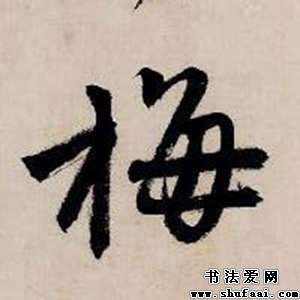 梅
书法爱网
www.shufaai.com